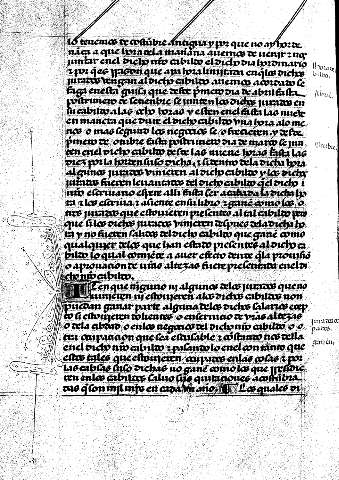 lo tenemos de costunbre antigua y por que no ay hor de
naça a que hora de la mañana avemos de venir z nos
juntar en el dicho nro cabildo el dicho dia hordinario
z por q̃ es Razon que aya hora limitada en q̃ los dichos
jurados vengan al dicho cabildo avemos acordado se
faga en esta guisa que desde p̃mero dia de abril fasta
postrimero de setenbre se junten los dichos jurados en
su cabildo a las ocho horas y esten en el fasta las nueve
en manera que dure el dicho cabildo vna hora a lo me
nos o mas segund los negocios se ofrecieren y desde
p̃mero de otubre fasta postrimero dia de março se jun
ten en el dicho cabildo desde las nueve horas fasta las
diez por la horden suso dicha z si dentro de la dicha hora
algunos jurados vinieren al dicho cabildo y los dichos
jurados fueren levantados del dicho cabildo q̃ el dicho n
nro escrivano espere alli fasta ser acabada la dicha ho
ra z los escriva z asiente en su libro z ganen como los o
tros jurados que estovieren presentes al tal cabildo pero
que si los dichos jurados vinieren despues de la dicha ho
ra y no fueren salidos del dicho cabildo que ganen como
qualquier de los que han estado presentes al dicho ca
bildo lo qual comiençe a aver efecto dende q̃ la provisio
o aprovacion de vras altezas fuere presentada en el di
cho nro cabildo
en que ninguno ni algunos de los jurados que no
vinieren ni estovieren a los dichos cabildos non
puedan ganar parte alguna de los dichos salarios exep
to si estovieren dolientes o en servicio de vras altezas
o de la cibdad o en los negocios del dicho nro cabildo o o
tra ocupacion que sea escusable z constando nos della
en el dicho nro cabildo z pasando lo en el con tanto que
estos tales que estovieren ocupados en las cosas z por
las cabsas suso dichas no ganen como los que Residie
ren en los cabildos salvo sus quitaciones acostunbra
das q̃ son mil mrs en cada vn año los quales di